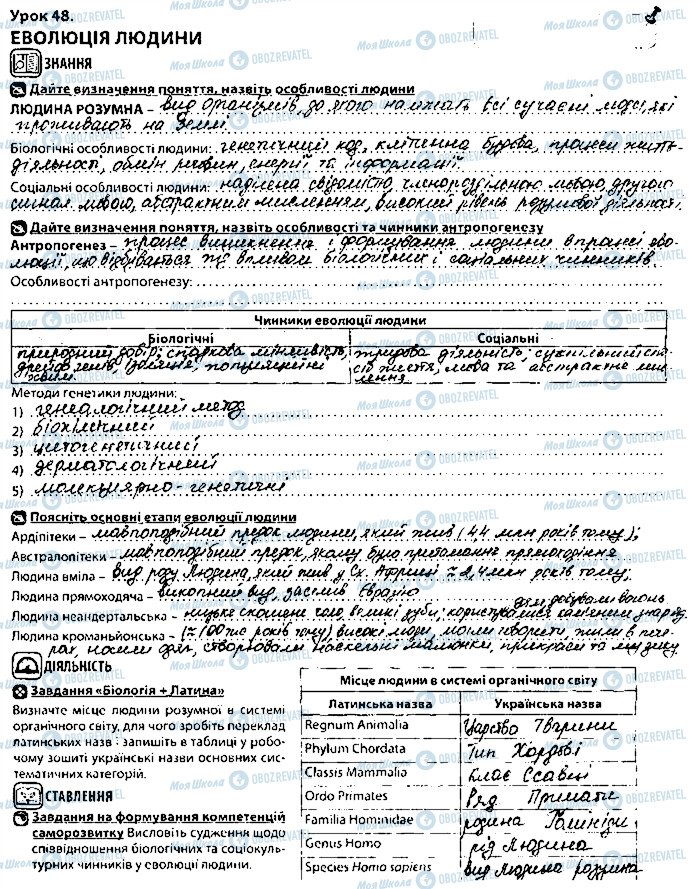 Урок 48.
ЕВОЛЮЦІЯ ЛЮДИНИ
ЗНАННЯ
Дайте визначення поняття, назвіть особливості людини
ЛЮДИНА РОЗУМНА – вид організмів, до якого належать всі сучасні люди, які
проживають на Землі
Біологічні особливості людини: генетичний код, клітинна будова, процеси життє-
діяльності, обмін речовин, енергії та інформації
Соціальні особливості людини: наділена свідомістю, членороздільною мовою, другою
сигнал. мовою, абстрактним мисленням, високий рівень розумової діяльності.
Дайте визначення поняття, назвіть особливості та чинники антропогенезу
Антропогенез – процес виникнення і формування людини в процесі ево-
люції, що відбувається під впливом біологічних і соціальних чинників
Особливості антропогенезу:
Чинники еволюції людини
Біологічні Соціальні
природний добір; спадкова мінливість, трудова діяльність; суспільний спо-
дрейф генів, ізоляція, популяційні сіб життя, мова та абстрактне мис-
хвилі лення
Методи генетики людини:
1) генеалогічний метод
2) біохімічний
3) цитогенетичний
4) дерматологічний
5) молекулярно-генетичні
Поясніть основні етапи еволюції людини
Ардіпітеки – мавпоподібний предок людини, який жив (4,4 млн років тому);
Австралопітеки – мавпоподібний предок, якому було притаманне прямоходіння
Людина вміла – вид роду Людина, який жив у Сх. Африці ≈ 2,4 млн років тому;
Людина прямоходяча – викопний вид, заселив Євразію
добували вогонь
Людина неандертальська – низьке скошене чоло, великі зуби; користувалися кам'яним знаряд.
Людина кроманьйонська – (≈100 тис років тому) високі люди, могли говорити, жили в пече-
рах, носили одяг, створювали наскельні малюнки, прикраси та музику
ДІЯЛЬНІСТЬ
Завдання «Біологія + Латина»
Визначте місце людини розумної в системі
органічного світу, для чого зробіть переклад
латинських назв і запишіть в таблиці у робо-
чому зошиті українські назви основних сис-
тематичних категорій.
СТАВЛЕННЯ
Завдання на формування компетенцій
саморозвитку Висловіть судження щодо
співвідношення біологічних та соціокуль-
турних чинників у еволюції людини.
Місце людини в системі органічного світу
Латинська назва Українська назва
Regnum Animalia Царство Тварини
Phylum Chordata Тип Хордові
Classis Mammalia клас Ссавці
Ordo Primates Ряд Примати
Familia Hominidae родина Гомініди
Genus Homo рід Людина
Species Homo sapiens вид людина розумна